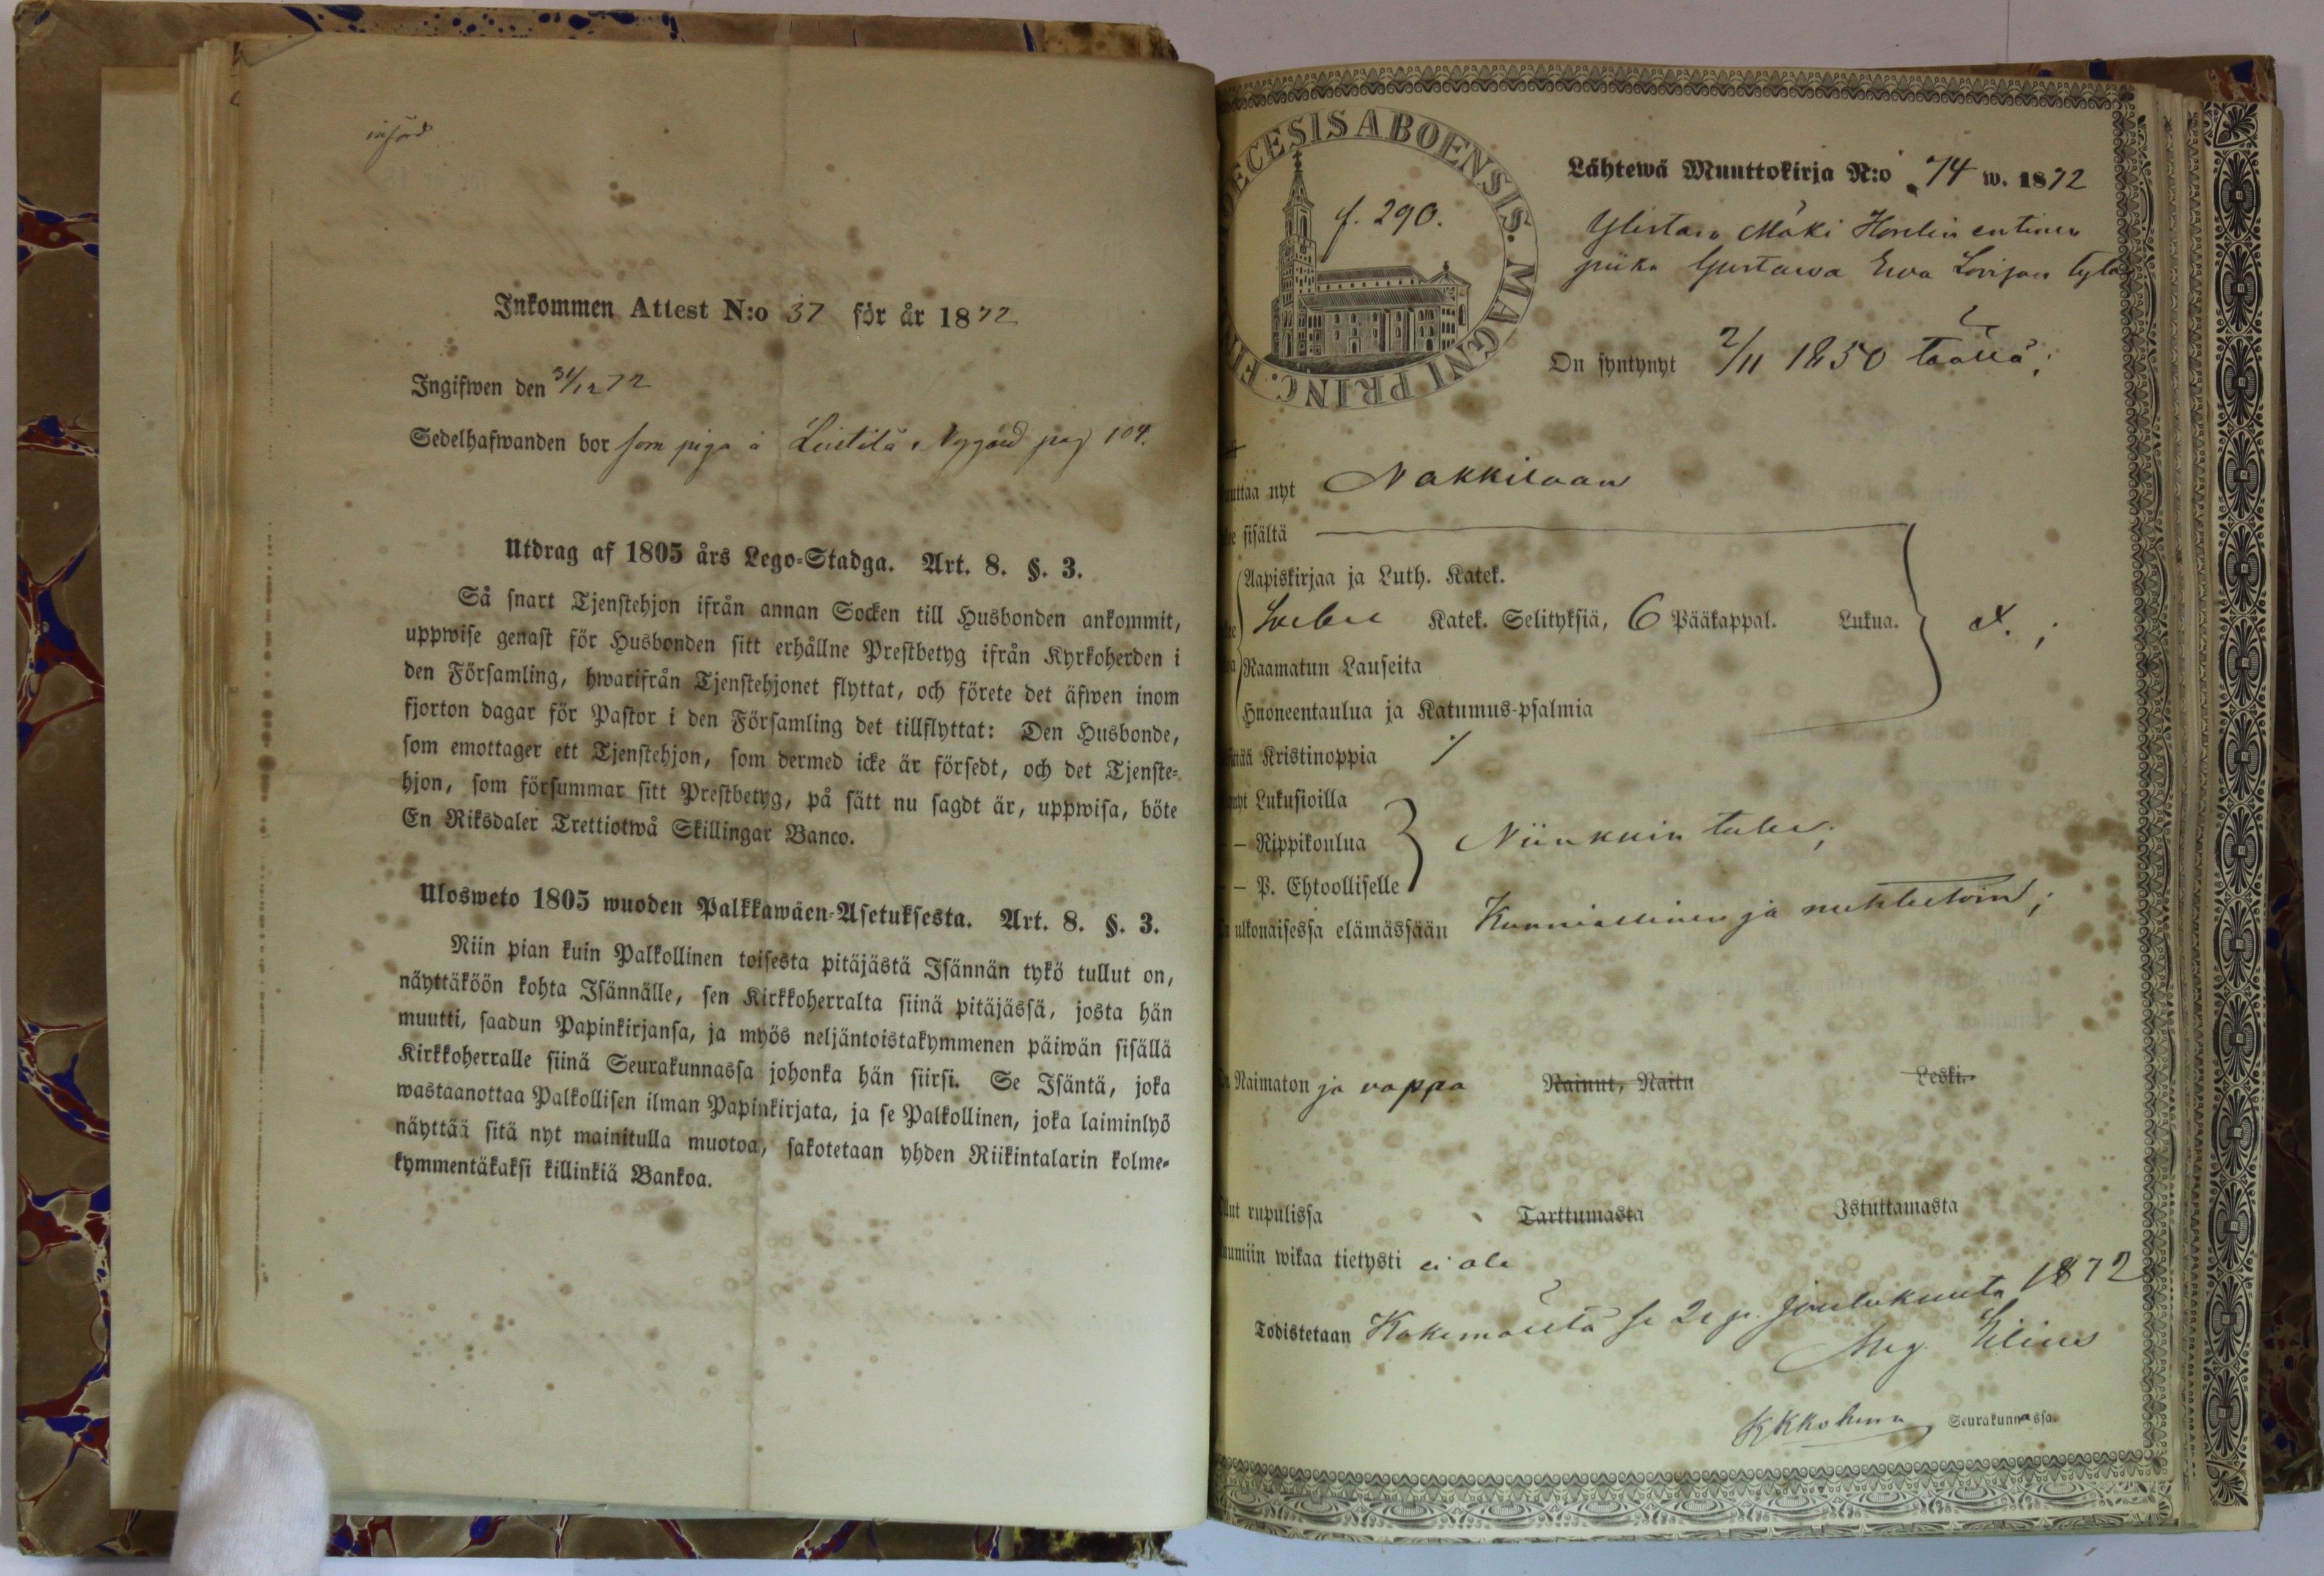 införd
Inkommen Attest N:o 37 för år 1872
Ingifwen den 31/12 72
Sedelhafwanden bor som piga å Leistilä Nygård pag 104.
Utdrag af 1805 års Lego-Stadga. Art. 8. §. 3.
Så snart Tjenstehjon ifrån annan Socken till Husbonden ankommit,
uppwise genast för Husbonden sitt erhållne Prestbetyg ifrån Kyrkoherden i
den Församling, hwarifrån Tjenstehjonet flyttat, och förete det äfwen inom
fjorton dagar för Pastor i den Församling det tillflyttat: Den Husbonde,
som emottager ett Tjenstehjon, som dermed icke är försedt, och det Tjenste-
hjon, som försummar sitt Prestbetyg, på sätt nu sagdt är, uppwisa, böte
En Riksdaler Trettiotwå Skillingar Banco.
Ulosweto 1805 wuoden Palkkawäen-Asetuksesta. Art. 8. §. 3.
Niin pian kuin Palkollinen toisesta pitäjästä Isännän tykö tullut on,
näyttäköön kohta Isännälle, sen Kirkkoherralta siinä pitäjässä, josta hän
muutti, saadun Papinkirjansa, ja myös neljäntoistakymmenen päiwän sisällä
Kirkkoherralle siinä Seurakunnassa johonka hän siirsi. Se Isäntä, joka
wastaanottaa Palkollisen ilman Papinkirjata, ja se Palkollinen, joka laiminlyö
näyttää sitä nyt mainitulla muotoa, sakotetaan yhden Riikintalarin kolme-
kymmentäkaksi killinkiä Bankoa.
ECESIS ABOENSIS. MAGNI PRINC. FI
f. 290.
Lähtewä Muuttokirja N:o 74 w. 1872
Ylistaro Mäki Horelin entinen
piika Gustawa Ewa Lovisan tytär
On syntynyt 2/11 1850 täällä;
uttaa nyt Nakkilaan
sisältä
Aapiskirjaa ja Luth. Katek.
Katek. Selityksiä, 6 Pääkappal. Lukua.
Raamatun Lauseita
Huoneentaulua ja Katumus-psalmia
Kristinoppia
nyt Lukusioilla
— Rippikoulua Niinkuin tulee;
— P. Ehtoolliselle
ulkonaisessa elämässään Kunniallinen ja nuhteetoin;
Naimaton ja vappa Nainut, Naitu Leski.
lut rupulissa Tarttumasta Istuttamasta
umiin wikaa tietysti ei ole
Todistetaan Kokemäeltä se 21 p. Joulukuuta 1872
KKkoherra Seurakunnassa.